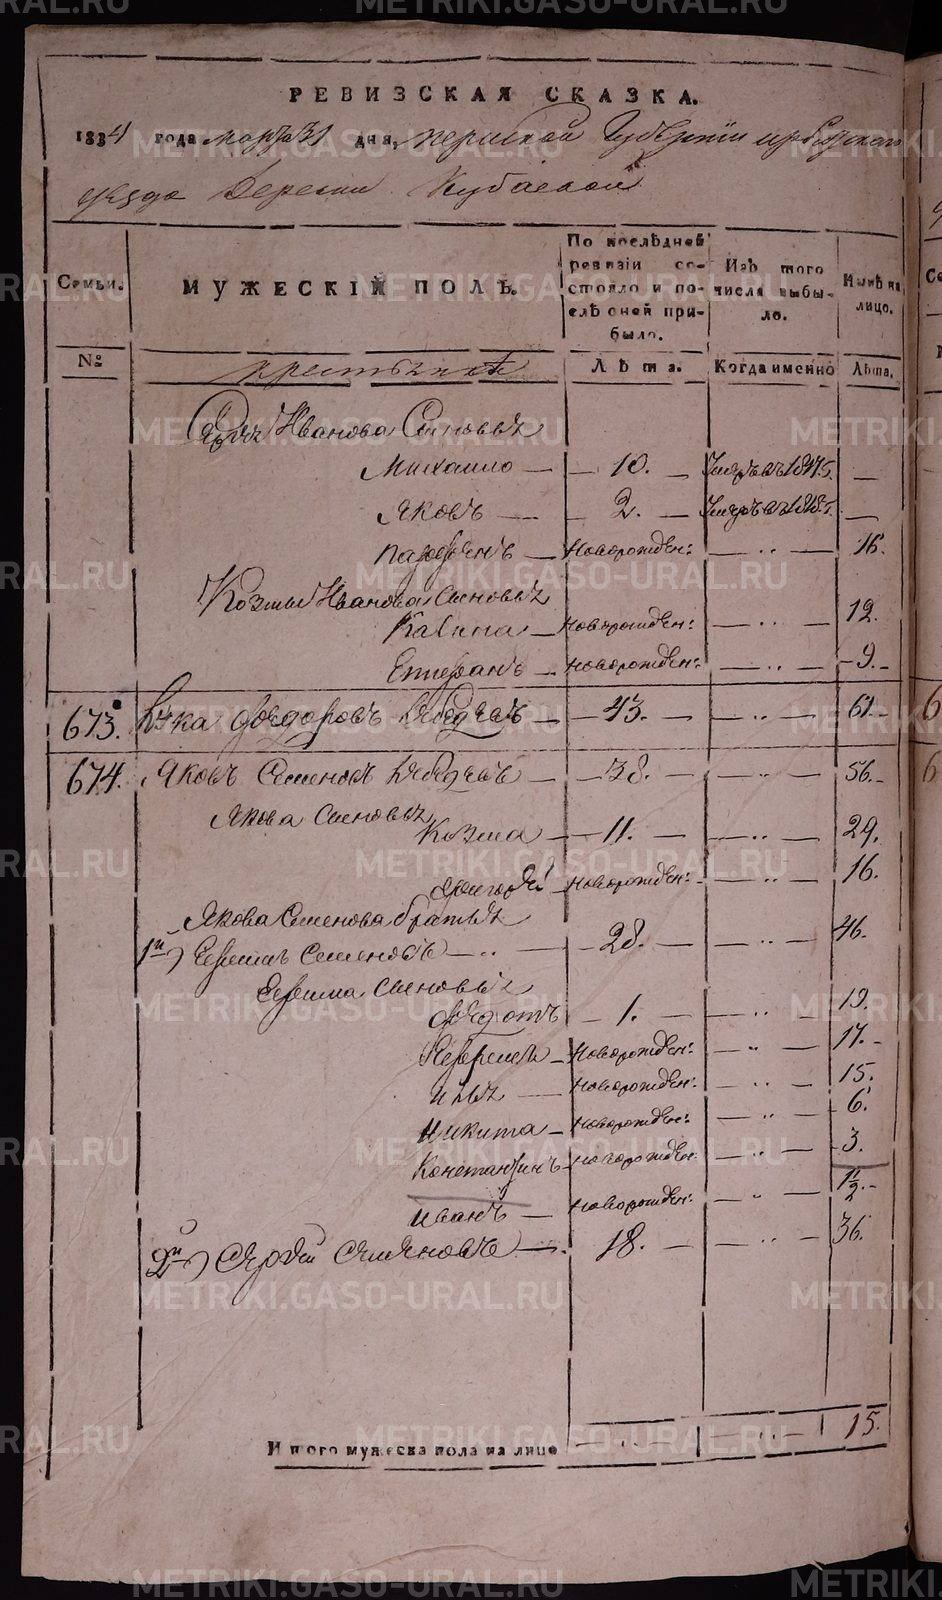 РЕВИЗСКАЯ СКАЗКА.
1834 года марта 31 дня, Пермской Губернии Ирбитского
уезда деревни Кубаевой
Семьи. МУЖЕСКІЙ ПОЛЪ. По послѣдней ревизіи состояло и послѣ оной прибыло. Изъ того числа выбыло. Нынѣ на лицо.
№ крестьяне Лѣта. Когда именно Лѣта.
Ивановa Сыновья
Михайло — 10. — Умеръ въ 18 —
Яковъ — 2. — Умеръ въ 18 —
Парфенъ — Новорожден: — 16.
Козмы Иванова Сыновья
Новорожден: — 12.
Новорожден: — 9.
673. Лука Федоровъ — 43. — 61.
674. Яковъ Семеновъ — 38. — 56.
Якова Сыновья
Козма — 11. — 29.
Григорей — Новорожден: — 16.
Якова Семенова братья
1й) Ефимъ Семеновъ — 28. — 46.
Ефима Сыновья
Федотъ — 1. — 19.
Новорожден: — 17.
Илья — Новорожден: — 15.
Никита — Новорожден: — 6.
Константинъ — Новорожден: — 3.
Иванъ — Новорожден: 1½.
2й) Сергей Семеновъ — 18. — 36.
Итого мужеска пола на лице — 15.
METRIKI.GASO-URAL.RU